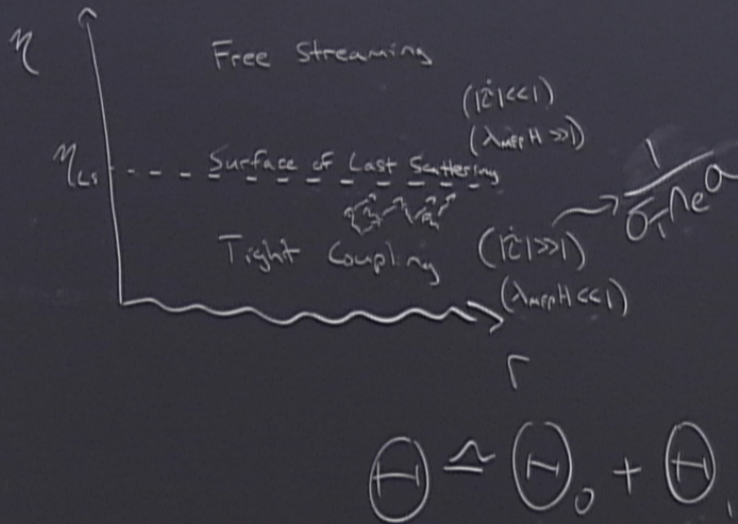 η
Free Streaming
(|τ̇|<<1)
(λ_MFP H >>1)
η_LS
Surface of Last Scattering
Tight Coupling
(|τ̇|>>1)
(λ_MFP H <<1)
1/(σ_T n_e a)
r
Θ ≃ Θ_0 + Θ_1